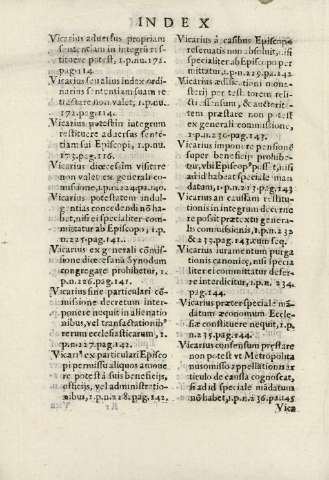 INDEX
Vicarius aduersus propriam
sententiam in integrũ resti
tituere potest, 1.p.nu.172.
pag.114.
Vicarius seu alius iudex ordi-
narius sententiam suam re-
tractare non valet, 1.p.nu.
172.pag.114.
Vicarius potest in integrum
restituere aduersus senten-
tiam sui Episcopi, 1.p.nu.
173.pag.116.
Vicarius diœcesim visitare
non valet ex generali com-
missione, 1.p.n.224.pa.140.
Vicarius potestatem indul-
gentias concedendi nõ ha-
bet, nisi ei specialiter com-
mittatur ab Episcopo, 1.p.
n.225.pag.141.
Vicarius ex generali cõmis-
sione diœcesanã Synodum
congregare prohibetur, 1.
p.n.226.pag.141.
Vicarius sine particulari cõ-
missione decretum inter-
ponere nequit in alienatio
nibus, vel transactionib⁹
rerum ecclesiasticarum, 1.
p.n.227.pag.142.
Vicari⁹ ex particulari Episco
pi permissu aliquos amoue
re potest à suis beneficijs,
officijs, vel administratio-
nibus, 1.p.n.218.pag.142.
Vicarius à casibus Episcopo
reseruatis non absoluit, nisi
specialiter ab Episcopo per
mittatur, 1.p.n.229.pa.142.
Vicarius ædificationi mona-
sterij per testatorem reli-
cti assensum, & auctorita-
tem præstare non potest
ex generali commissione,
1.p.n.230.pag.143.
Vicarius imponere pensionẽ
super beneficijs prohibe-
tur, vbi Episcop⁹ posset, nisi
ad id habeat speciale man-
datum, 1.p.n.217.pag.143
Vicarius an causam restituti
tionis in integrum decerne
re possit præt̃extu genera-
lis commissionis, 1.p.n.232
& 233.pag.143.cum seq.
Vicarius iuramentum purga
tionis canonicæ, nisi specia
liter ei committatur defer-
re interdicitur, 1.p.n. 234.
pag.144.
Vicarius præter speciale mã-
datum œconomum Eccle-
siæ constituere nequit, 1.p.
n.235.pag.144.
Vicarius consensum præstare
non potest vt Metropolita
nus omisso appellationis ar
ticulo de causa cognoscat,
si ad id speciale mãdatum
nõ habet, 1.p.n.236.pa.145
Vica